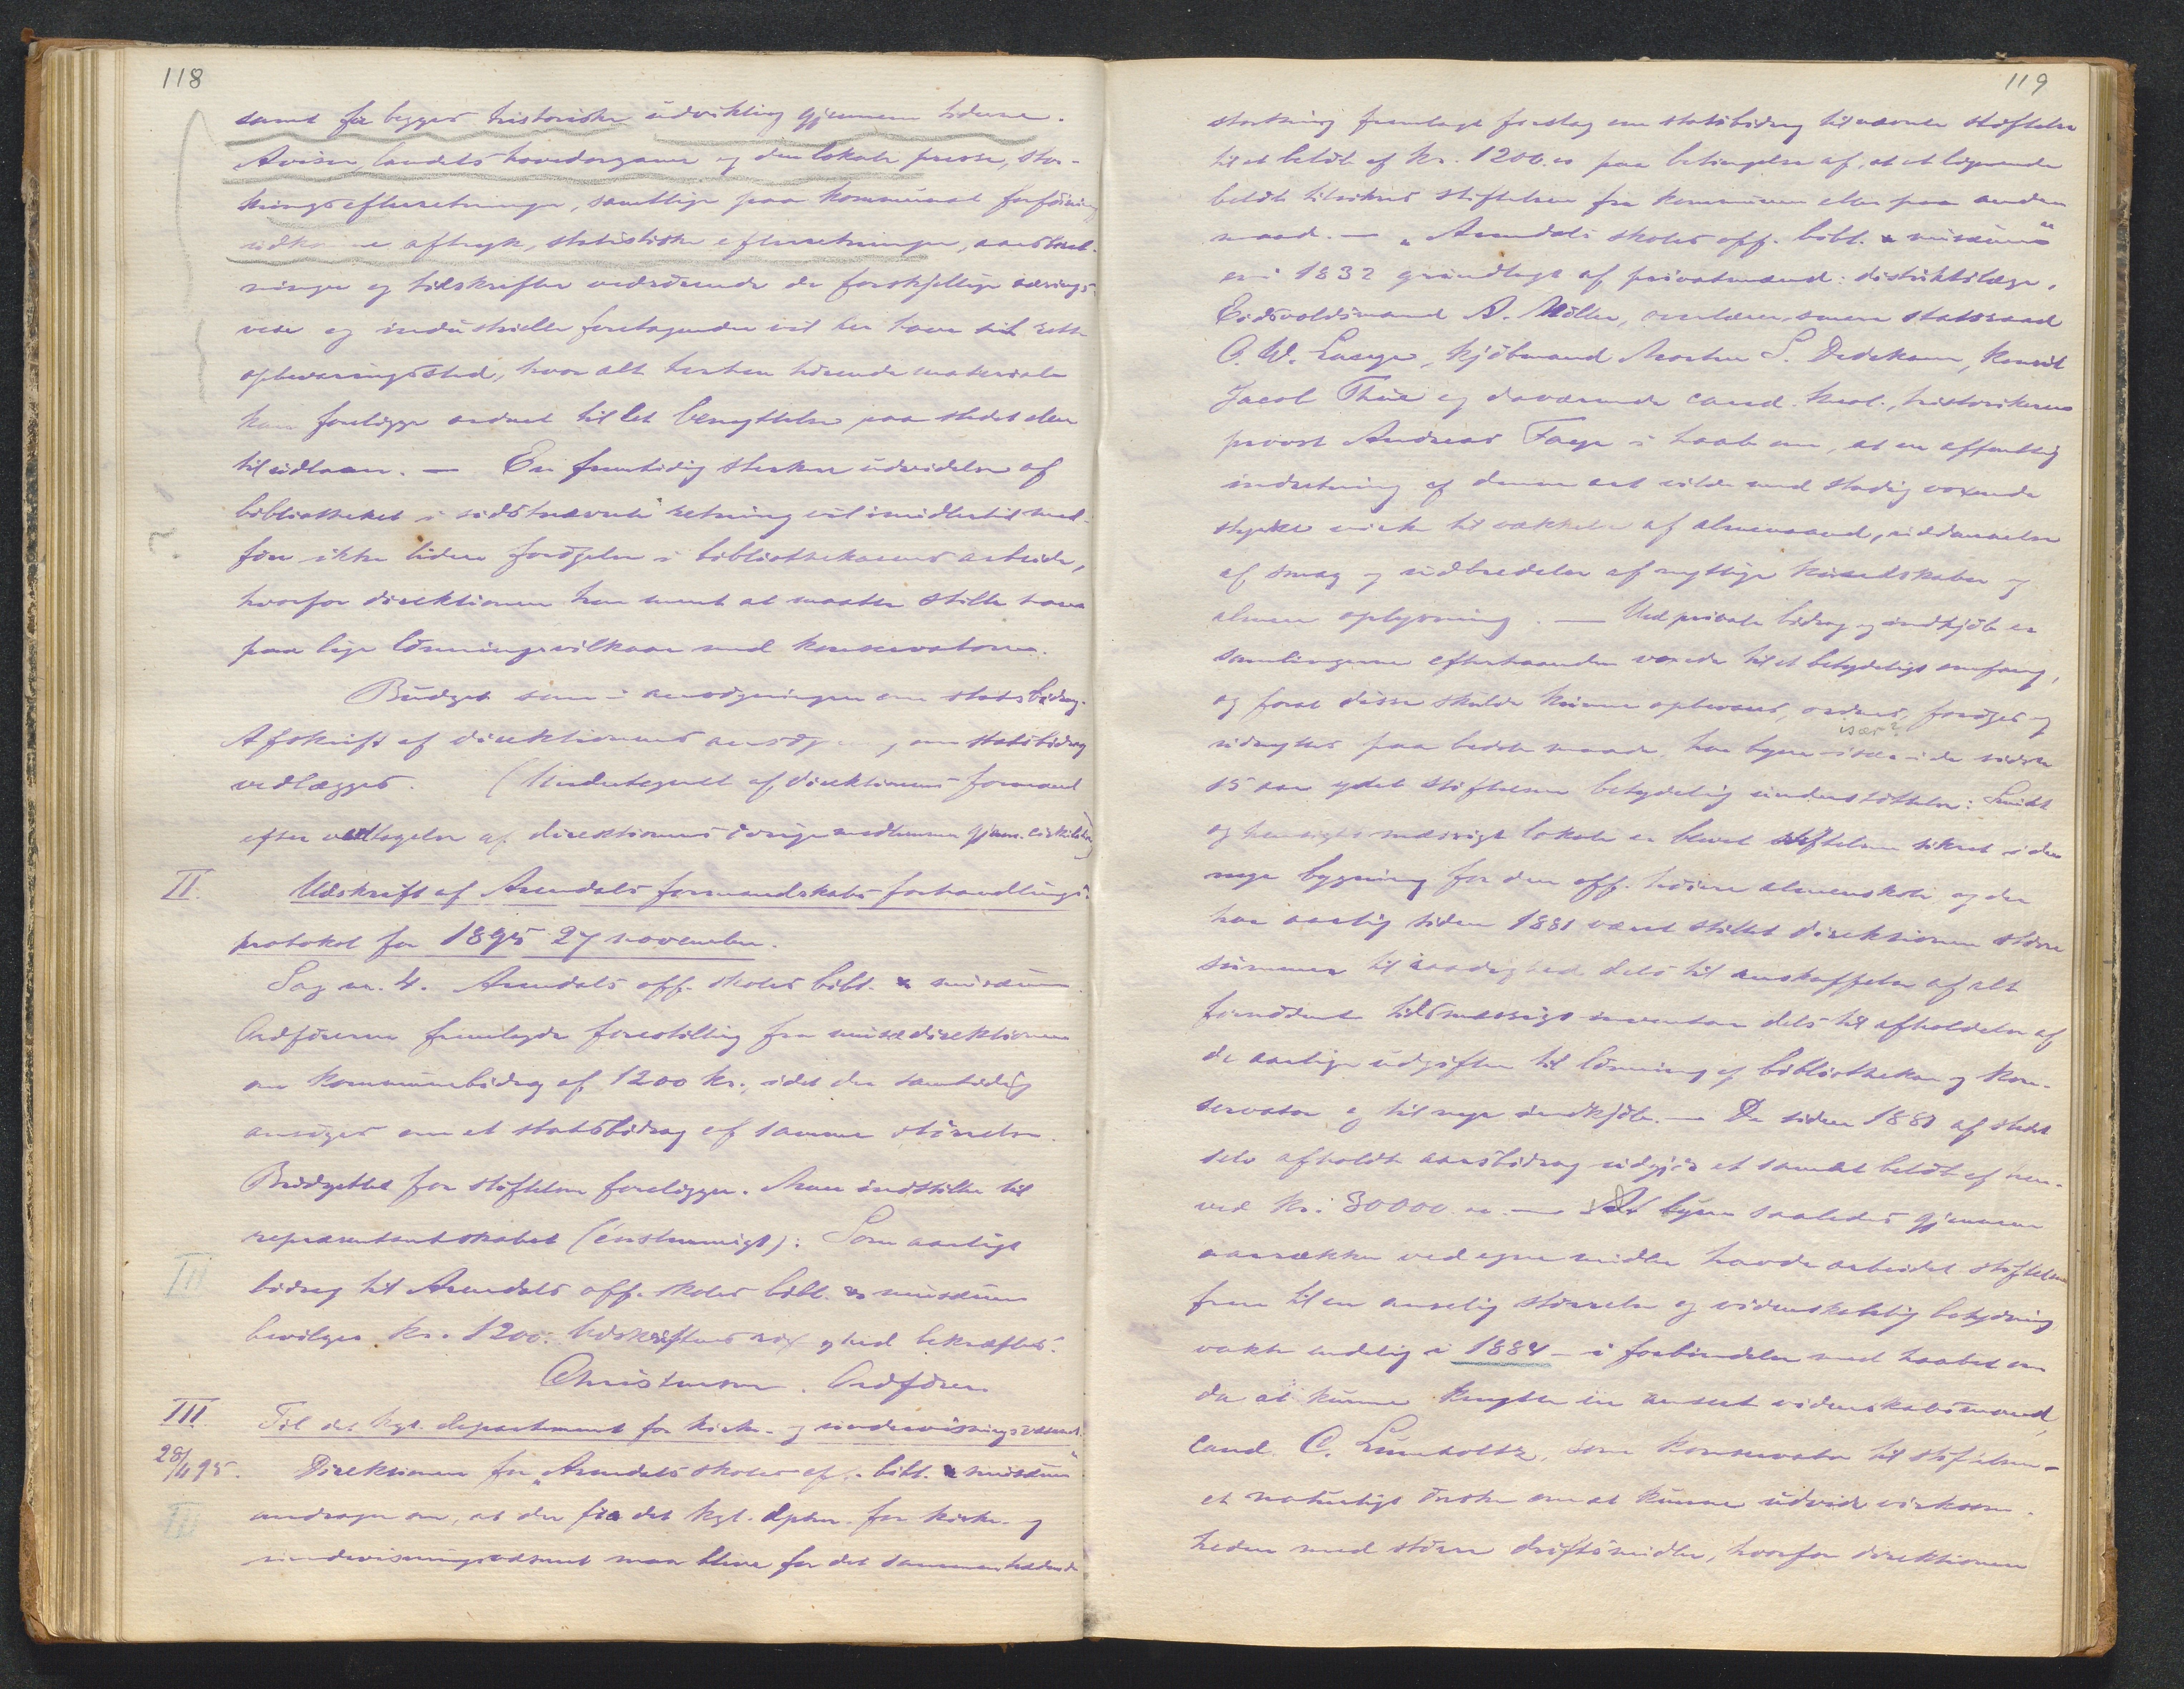 118
samt for begges historiske udvikling gjennem tiderne.
Aviser, landets hovedorganer og den lokale presse, stor-
thingsefterretninger, samtlige paa kommunal forføining
udkomne aftryk, statistiske efterretninger, aarsberet-
ninger og tidsskrifter vedrørende de forskjellige nærings-
veie og industrielle foretagender vil her have sit rette
opbevaringssted, hvor alt herhen hørende materiale
kan foreligge ordnet til let benyttelse paa stedet eller
til udlaan. — En fremtidig sterkere udvidelse af
bibliotheket i sidstnævnte retning vil imidlertid med-
føre ikke liden forøgelse i bibliothekarens arbeide,
hvorfor direktionen har ment at maatte stille ham
paa lige lønningsvilkaar med konservatoren.
Budget som i ansøgningen om statsbidrag.
Afskrift af direktionens om statsbidrag
vedlægges. (Undertegnet af direktionens formand
efter vedtagelse af direktionens øvrige medlemmer gjen. cirkulation)
II. Udskrift af Arendals formandskabs forhandlings-
protokol for 1895 27 november.
Sag nr. 4. Arendals off. skoles bibl. & musæum.
Ordføreren fremlagde forestilling fra musædirektionen
om kommunebidrag af 1200 kr., idet der samtidig
ansøges om et statsbidrag af samme størrelse.
Budgettet for stiftelsen foreligger. Man indstiller til
repræsentantskabet (enstemmigt): Som aarligt
III bidrag til Arendals off. skoles bibl. & musæum
bevilges kr. 1200. Udskriftens rigtighed bekræftes.
Christensen. Ordfører
III. Til det kgl. departement for kirke- og undervisningsvæsenet.
28/11 95. Direktionen for „Arendals skoles off. bibl. & musæum"
III andrager om, at der fra det kgl. dptm. for kirke- og
undervisningsvæsenet maa blive for det sammentrædende
119
storthing fremlagt forslag om statsbidrag til nævnte stiftelse
til et beløb af kr. 1200.00 paa betingelse af, at et lignende
beløb tilsikres stiftelsen fra kommunen eller paa anden
maad. — „Arendals skoles off. bibl. & musæum"
er i 1832 grundlagt af privatmænd: distriktslæge,
Eidsvoldsmand A. Møller, overlærer, senere statsraad
O. W. Lange, kjøbmand Morten S. Dedekam, konsul
Jacob Thue og daværende cand. theol., historikeren
provst Andreas Faye i haab om, at en offentlig
indretning af denne art vilde med stadig voxende
styrke virke til vækkelse af almenaand, uddannelse
af smag og udbredelse af nyttige kundskaber og
almen oplysning. — Ved private bidrag og indkjøb er
samlingerne efterhaanden voxede til et betydeligt omfang,
og forat disse skulde kunne opbevares, ordnes, forøges og
især?
udnyttes paa bedste maade, har byen især i de sidste
15 aar ydet stiftelsen betydelig understøttelse: Smukt
og hensigtsmæssigt lokale er blevet stiftelsen sikret i den
nye bygning for den off. høiere almenskole og der
har aarlig siden 1881 været stillet direktionen større
summer til raadighed dels til anskaffelse af alt
fornødent tidsmæssigt inventar dels til afholdelse af
de aarlige udgifter til lønning af bibliothekar og kon-
servator og til nye indkjøb. — De siden 1881 af stedet
selv afholdte aarsbidrag udgjør et samlet beløb af hen-
ved kr. 30000.00. — At byen saaledes gjennem
aarrækker ved egne midler havde arbeidet stiftelsen
frem til en anselig størrelse og videnskabelig betydning
vakte endelig i 1884 — i forbindelse med haabet om
da at kunne knytte en anseet videnskabsmand,
cand. C. Lumholtz, som konservator til stiftelsen —
et naturligt ønske om at kunne udvide virksom-
heden med større driftsmidler, hvorfor direktionen